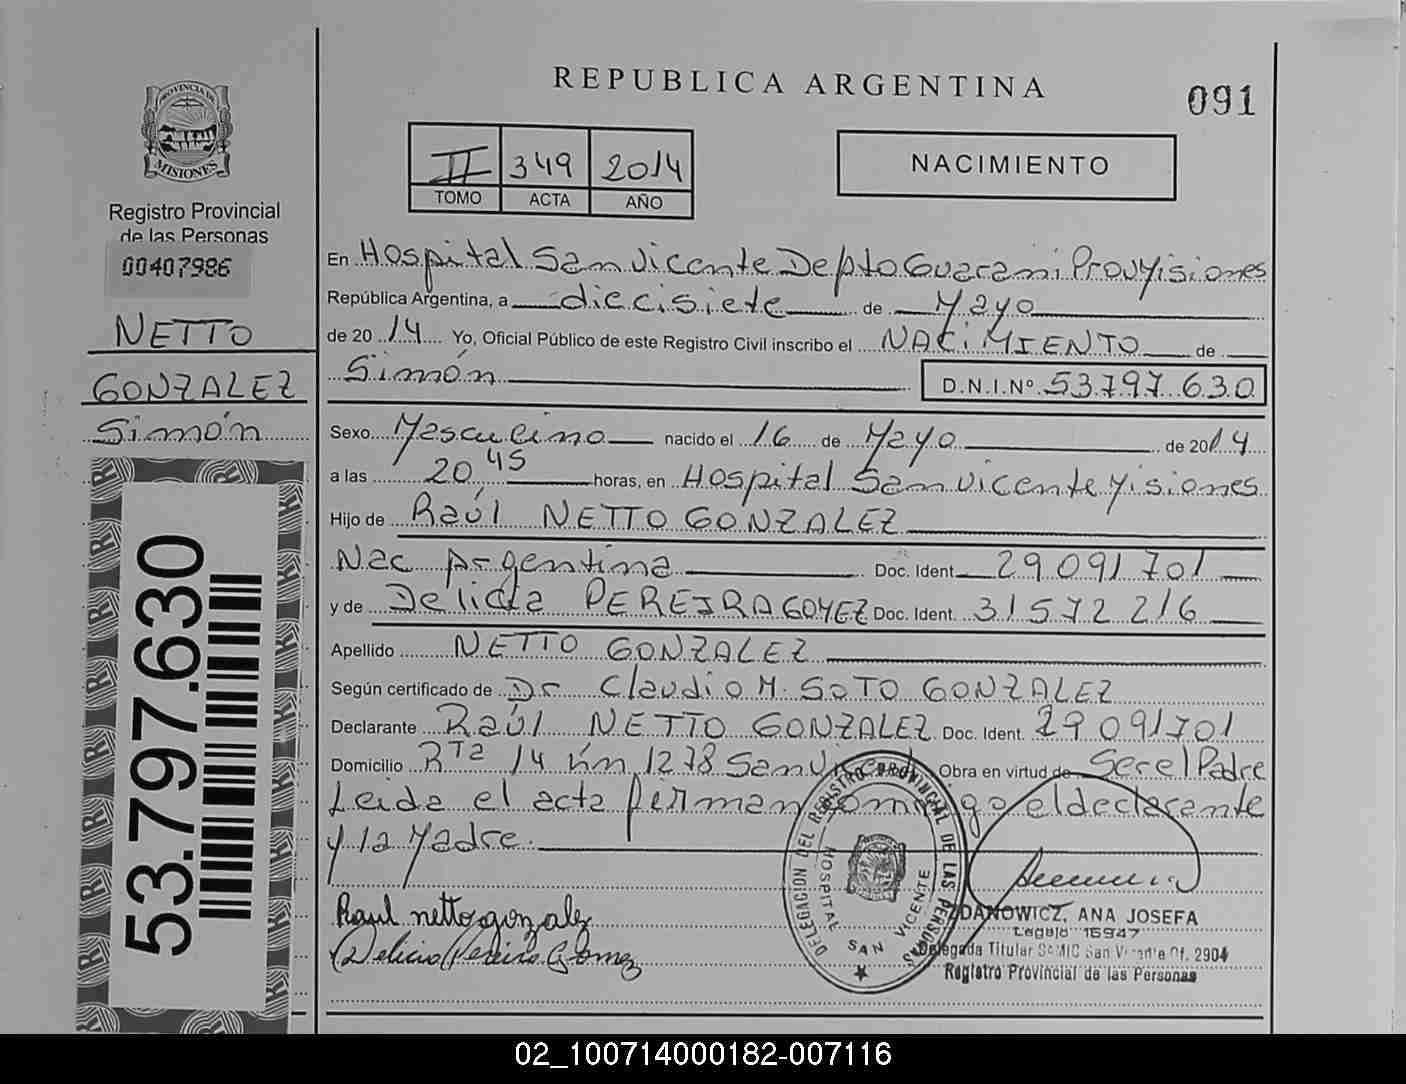 REPUBLICA ARGENTINA
091
PROVINCIA DE
MISIONES
Registro Provincial
de las Personas
00407986
NETTO
GONZALEZ
Simón
53.797.630
II 349 2014
TOMO ACTA AÑO
NACIMIENTO
En Hospital San Vicente Depto Guarani Prov Misiones
República Argentina, a diecisiete de Mayo
de 20 14 Yo, Oficial Público de este Registro Civil inscribo el NACIMIENTO de
Simón D.N.I.Nº 53.797.630
Sexo Masculino nacido el 16 de Mayo de 2014
a las 20 45 horas, en Hospital San Vicente Misiones
Hijo de Raúl NETTO GONZALEZ
Nac Argentina Doc. Ident. 29 091 701
y de Delicia PEREIRA GOMEZ Doc. Ident. 31 572 216
Apellido NETTO GONZALEZ
Según certificado de Dr Claudio M. SOTO GONZALEZ
Declarante Raúl NETTO GONZALEZ Doc. Ident. 29 091 701
Domicilio Rta 14 Km 1278 San Vicente Obra en virtud de Ser el Padre
Leida el acta firman conmigo el declarante
y la Madre.
Raul netto gonzalez
Delicia Pereira Gomez
DELEGACION DEL REGISTRO PROVINCIAL DE LAS PERSONAS
HOSPITAL SAN VICENTE
ZDANOWICZ, ANA JOSEFA
Legajo 15947
Delegada Titular San Vicente Of. 2904
Registro Provincial de las Personas
02_100714000182-007116